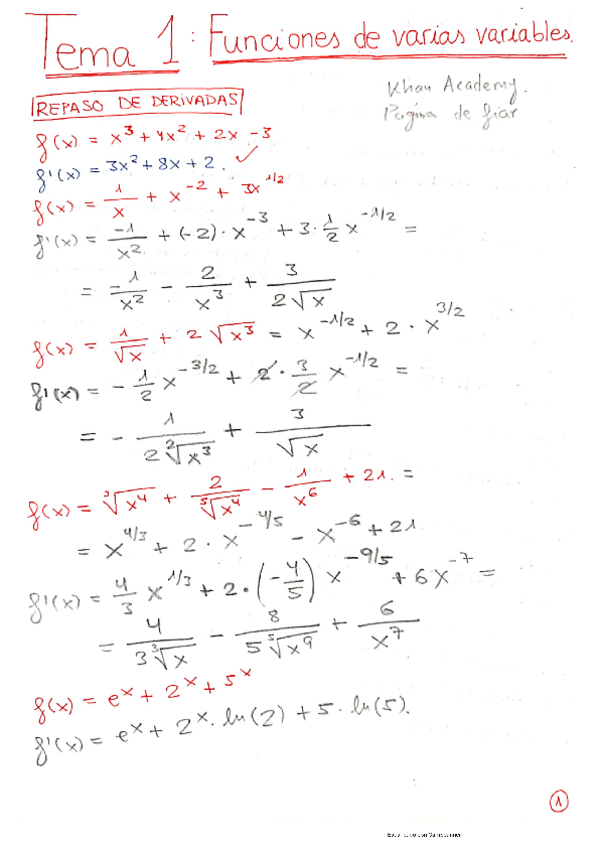 Tema 1: Funciones de varias variables.
Khan Academy.
REPASO DE DERIVADAS
Página de fiar
f(x) = x³ + 4x² + 2x - 3
f'(x) = 3x² + 8x + 2. ✓
f(x) = 1/x + x⁻² + 3x^(1/2)
f'(x) = -1/x² + (-2)·x⁻³ + 3·1/2 x^(-1/2) =
= -1/x² - 2/x³ + 3/(2√x)
f(x) = 1/√x + 2√x³ = x^(-1/2) + 2·x^(3/2)
f'(x) = -1/2 x^(-3/2) + 2·3/2 x^(-1/2) =
= - 1/(2 ²√x³) + 3/√x
f(x) = ³√x⁴ + 2/⁵√x⁴ - 1/x⁶ + 21. =
= x^(4/3) + 2·x^(-4/5) - x⁻⁶ + 21
f'(x) = 4/3 x^(1/3) + 2·(-4/5) x^(-9/5) + 6x⁻⁷ =
= 4/(3 ³√x) - 8/(5 ⁵√x⁹) + 6/x⁷
f(x) = eˣ + 2ˣ + 5ˣ
f'(x) = eˣ + 2ˣ·ln(2) + 5·ln(5).
1